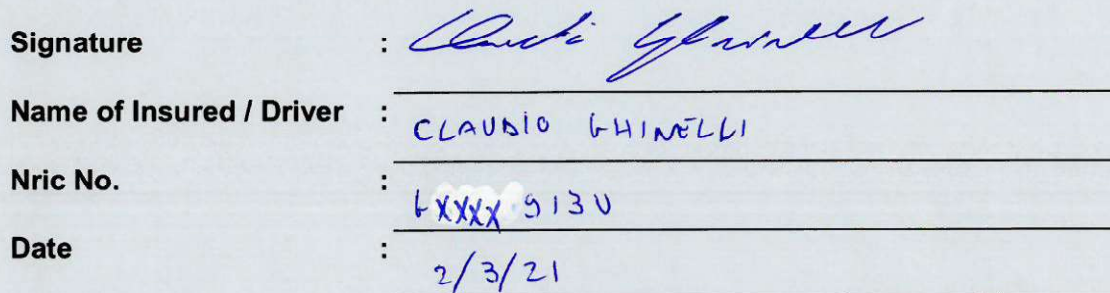 Signature : Claudio Ghinelli
Name of Insured / Driver : CLAUDIO GHINELLI
Nric No. : GXXXX913U
Date : 2/3/21